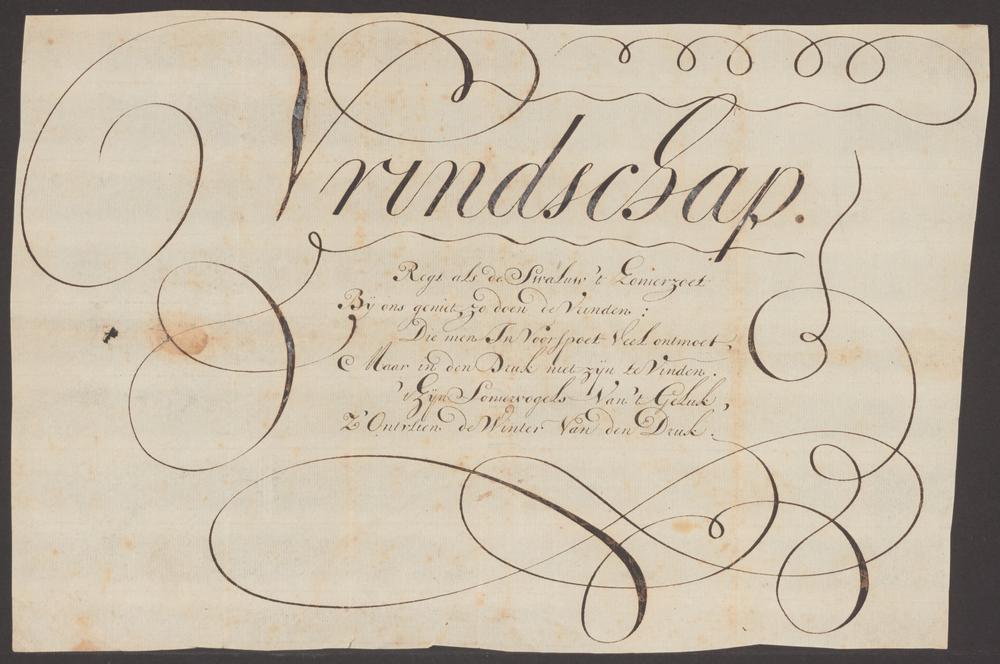 Vrindschap.
Regt als de Swaluw 't Somerzoet
Bÿ ons geniet, zo doen de Vrinden:
Die men In Voorspoet Veel ontmoet,
Maar in den Druk niet zÿn te Vinden.
't Zÿn Somervogels Van 't Geluk,
Z'Ontvlien de Winter Van den Druk.